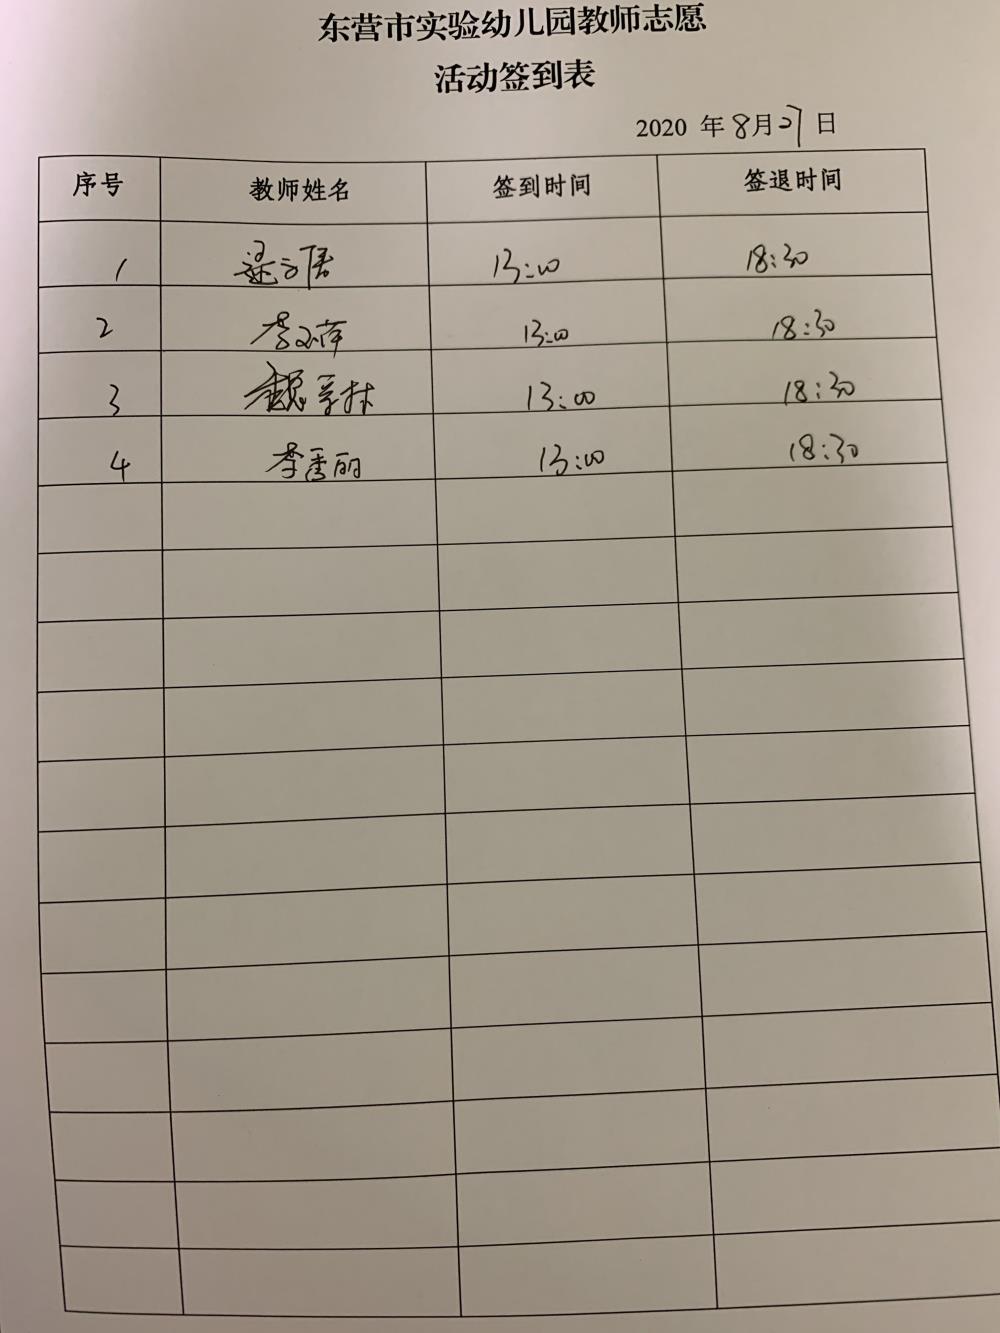 东营市实验幼儿园教师志愿
活动签到表
2020 年 8月27日
序号 教师姓名 签到时间 签退时间
1 13:00 18:30
2 李 萍 13:00 18:30
3 魏 林 13:00 18:30
4 李秀丽 13:00 18:30